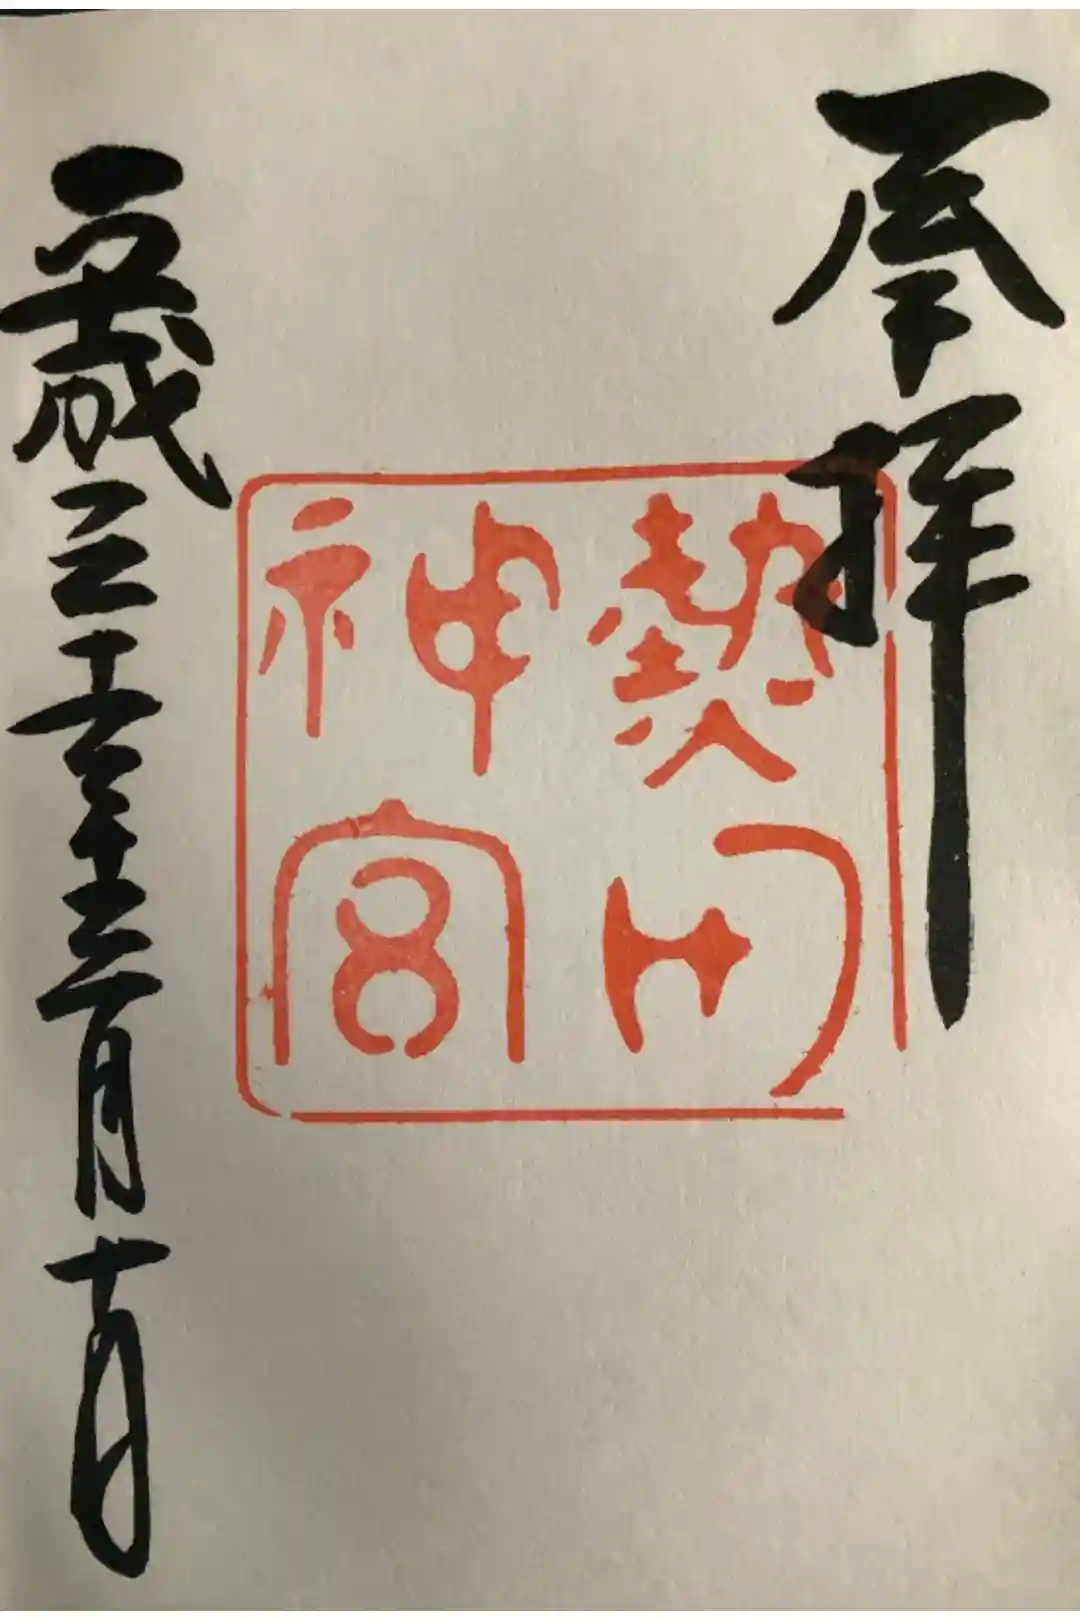 奉拝
熱田
神宮
平成三十年 月十日